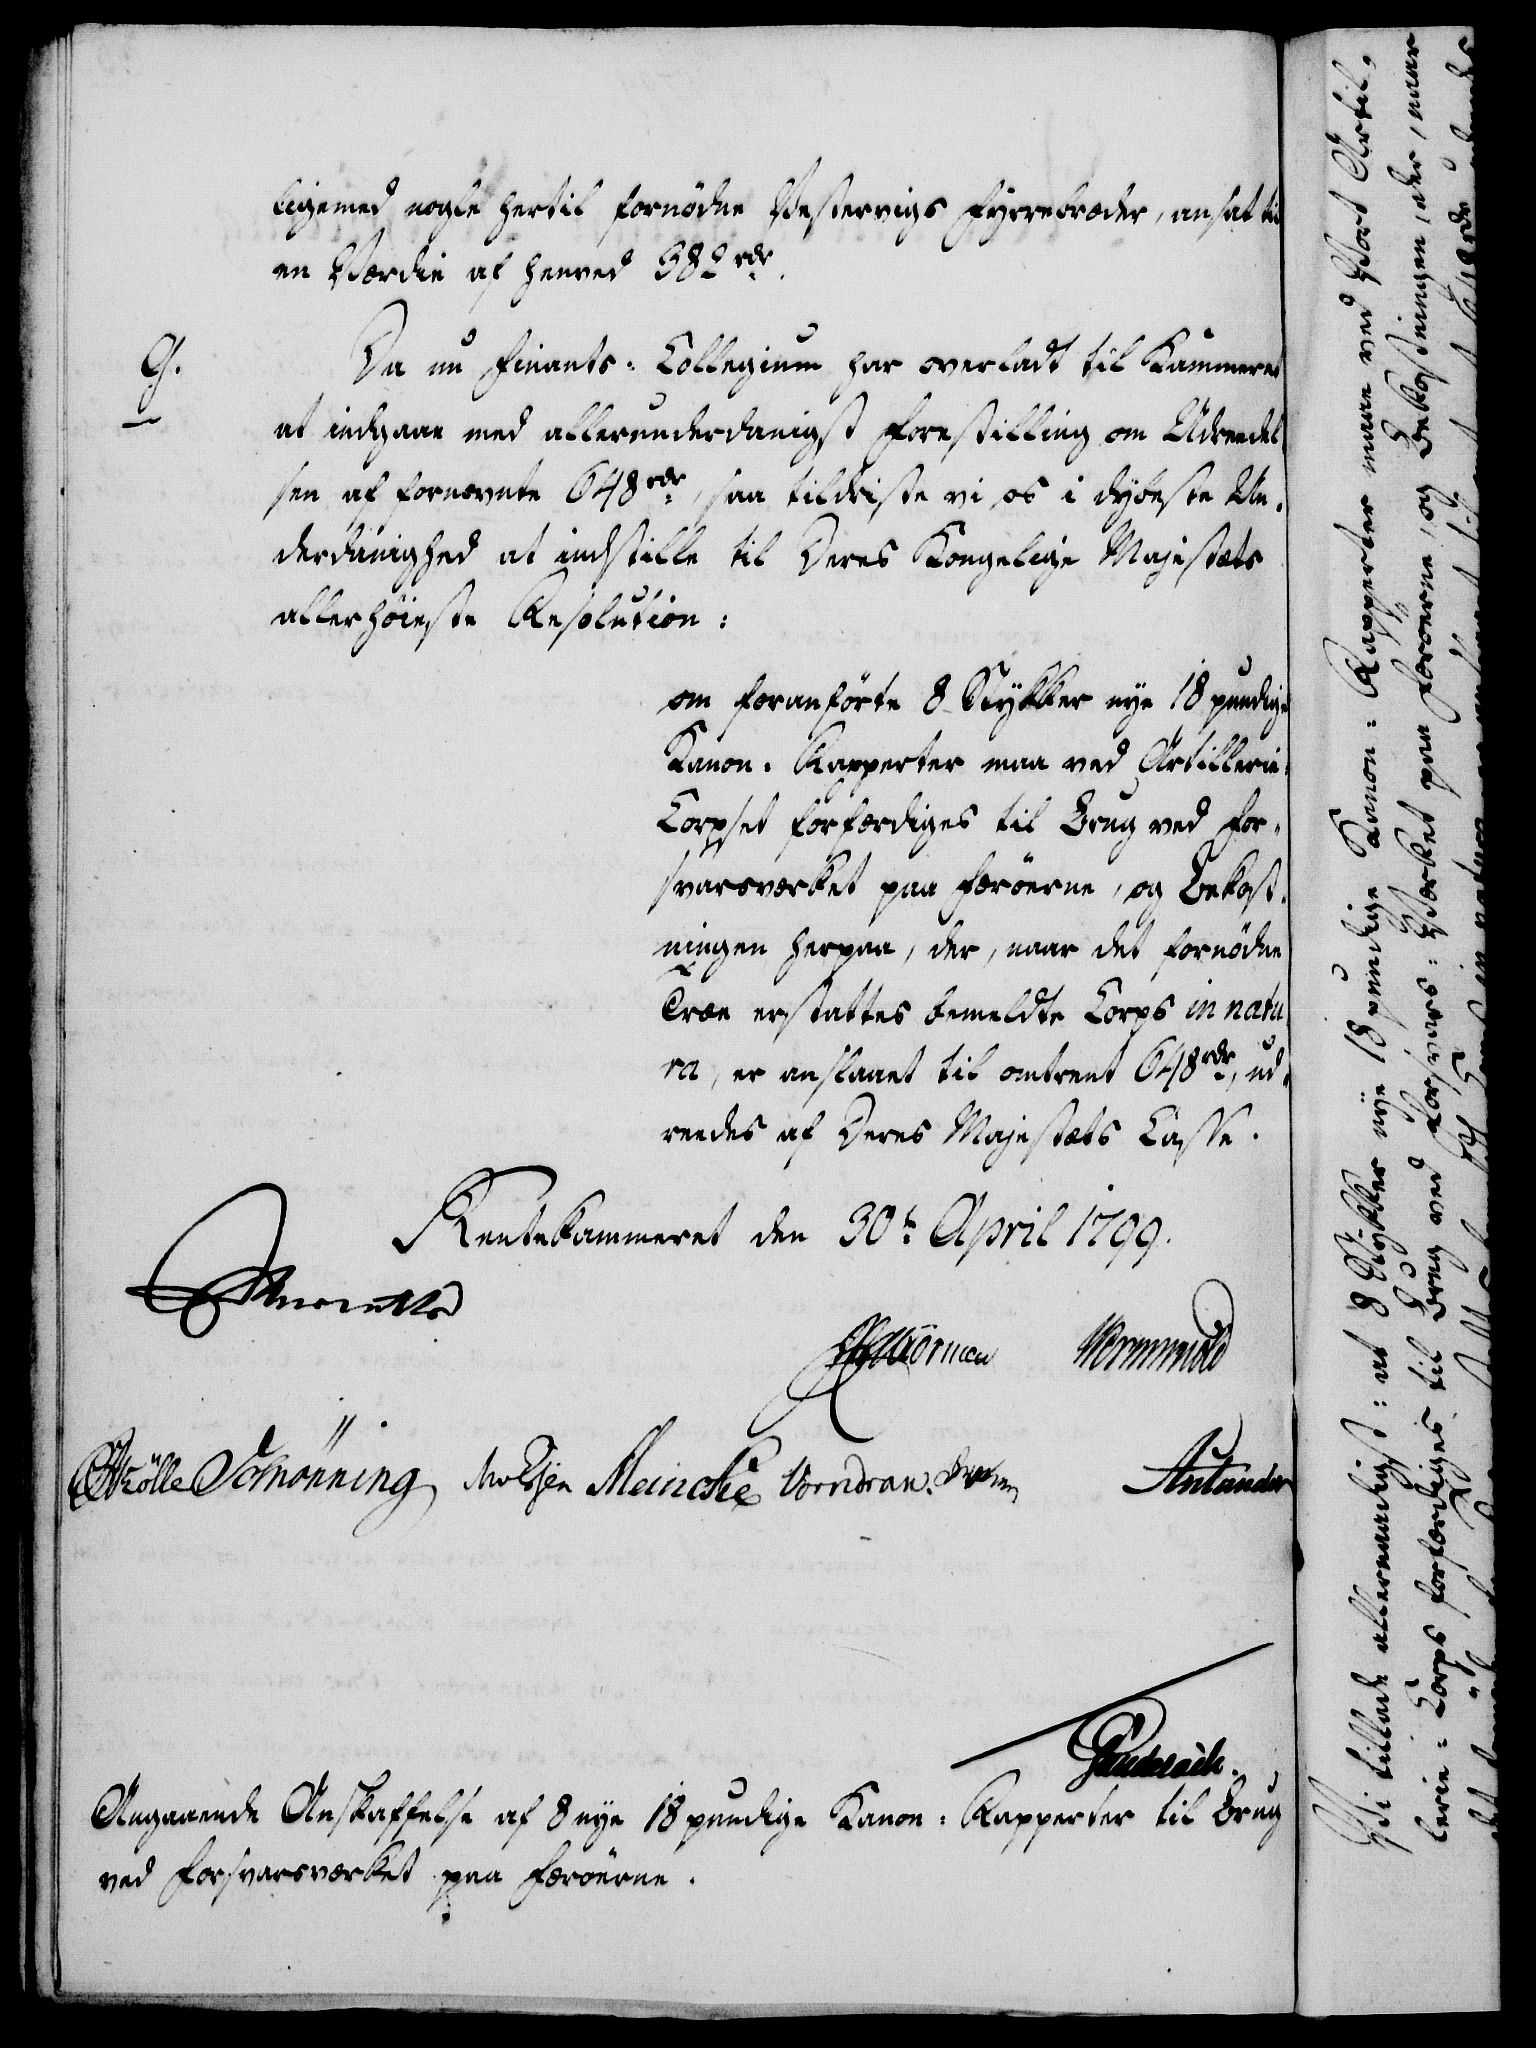 ligemed nogle hertil fornödne Vestervigs Fyrrebræder, ansat til
en Værdie af henved 382 rdr.
G.
Da nu Finants-Collegium har overladt til Kammeret
at indgaae med allerunderdanigst Forestilling om Udreedel-
sen af fornævnte 648 rdr, saa tildriste vi os i dybeste Un-
derdanighed at indstille til Deres Kongelige Majestæts
allerhöieste Resolution:
om foranförte 8 Stykker nye 18 pundige
Kanon-Rapperter maa ved Artillerie-
Corpset forfærdiges til Brug ved For-
svarsværket paa Færöerne, og Bekost-
ningen herpaa, der, naar det fornödne
Træe erstattes bemeldte Corps in natu
ra, er anslaaet til omtrent 648 rdr, ud-
reedes af Deres Majestæts Casse.
Rentekammeret den 30te April 1799.
Wormskiold
Schönning Meincke Vorndran
Angaaende Anskaffelse af 8 nye 18 pundige Kanon-Rapperter til Brug
ved Forsvarsværket paa Færöerne.
Vi tillade allernaadigst: at 8 Stykker nÿe 18 pundige Kanon-Rapperter maae ved Vort Artil-
lerie-Corps forfærdiges til Brug ved Forsvars-Værket paa Færöerne, og Bekostningen, der, naar